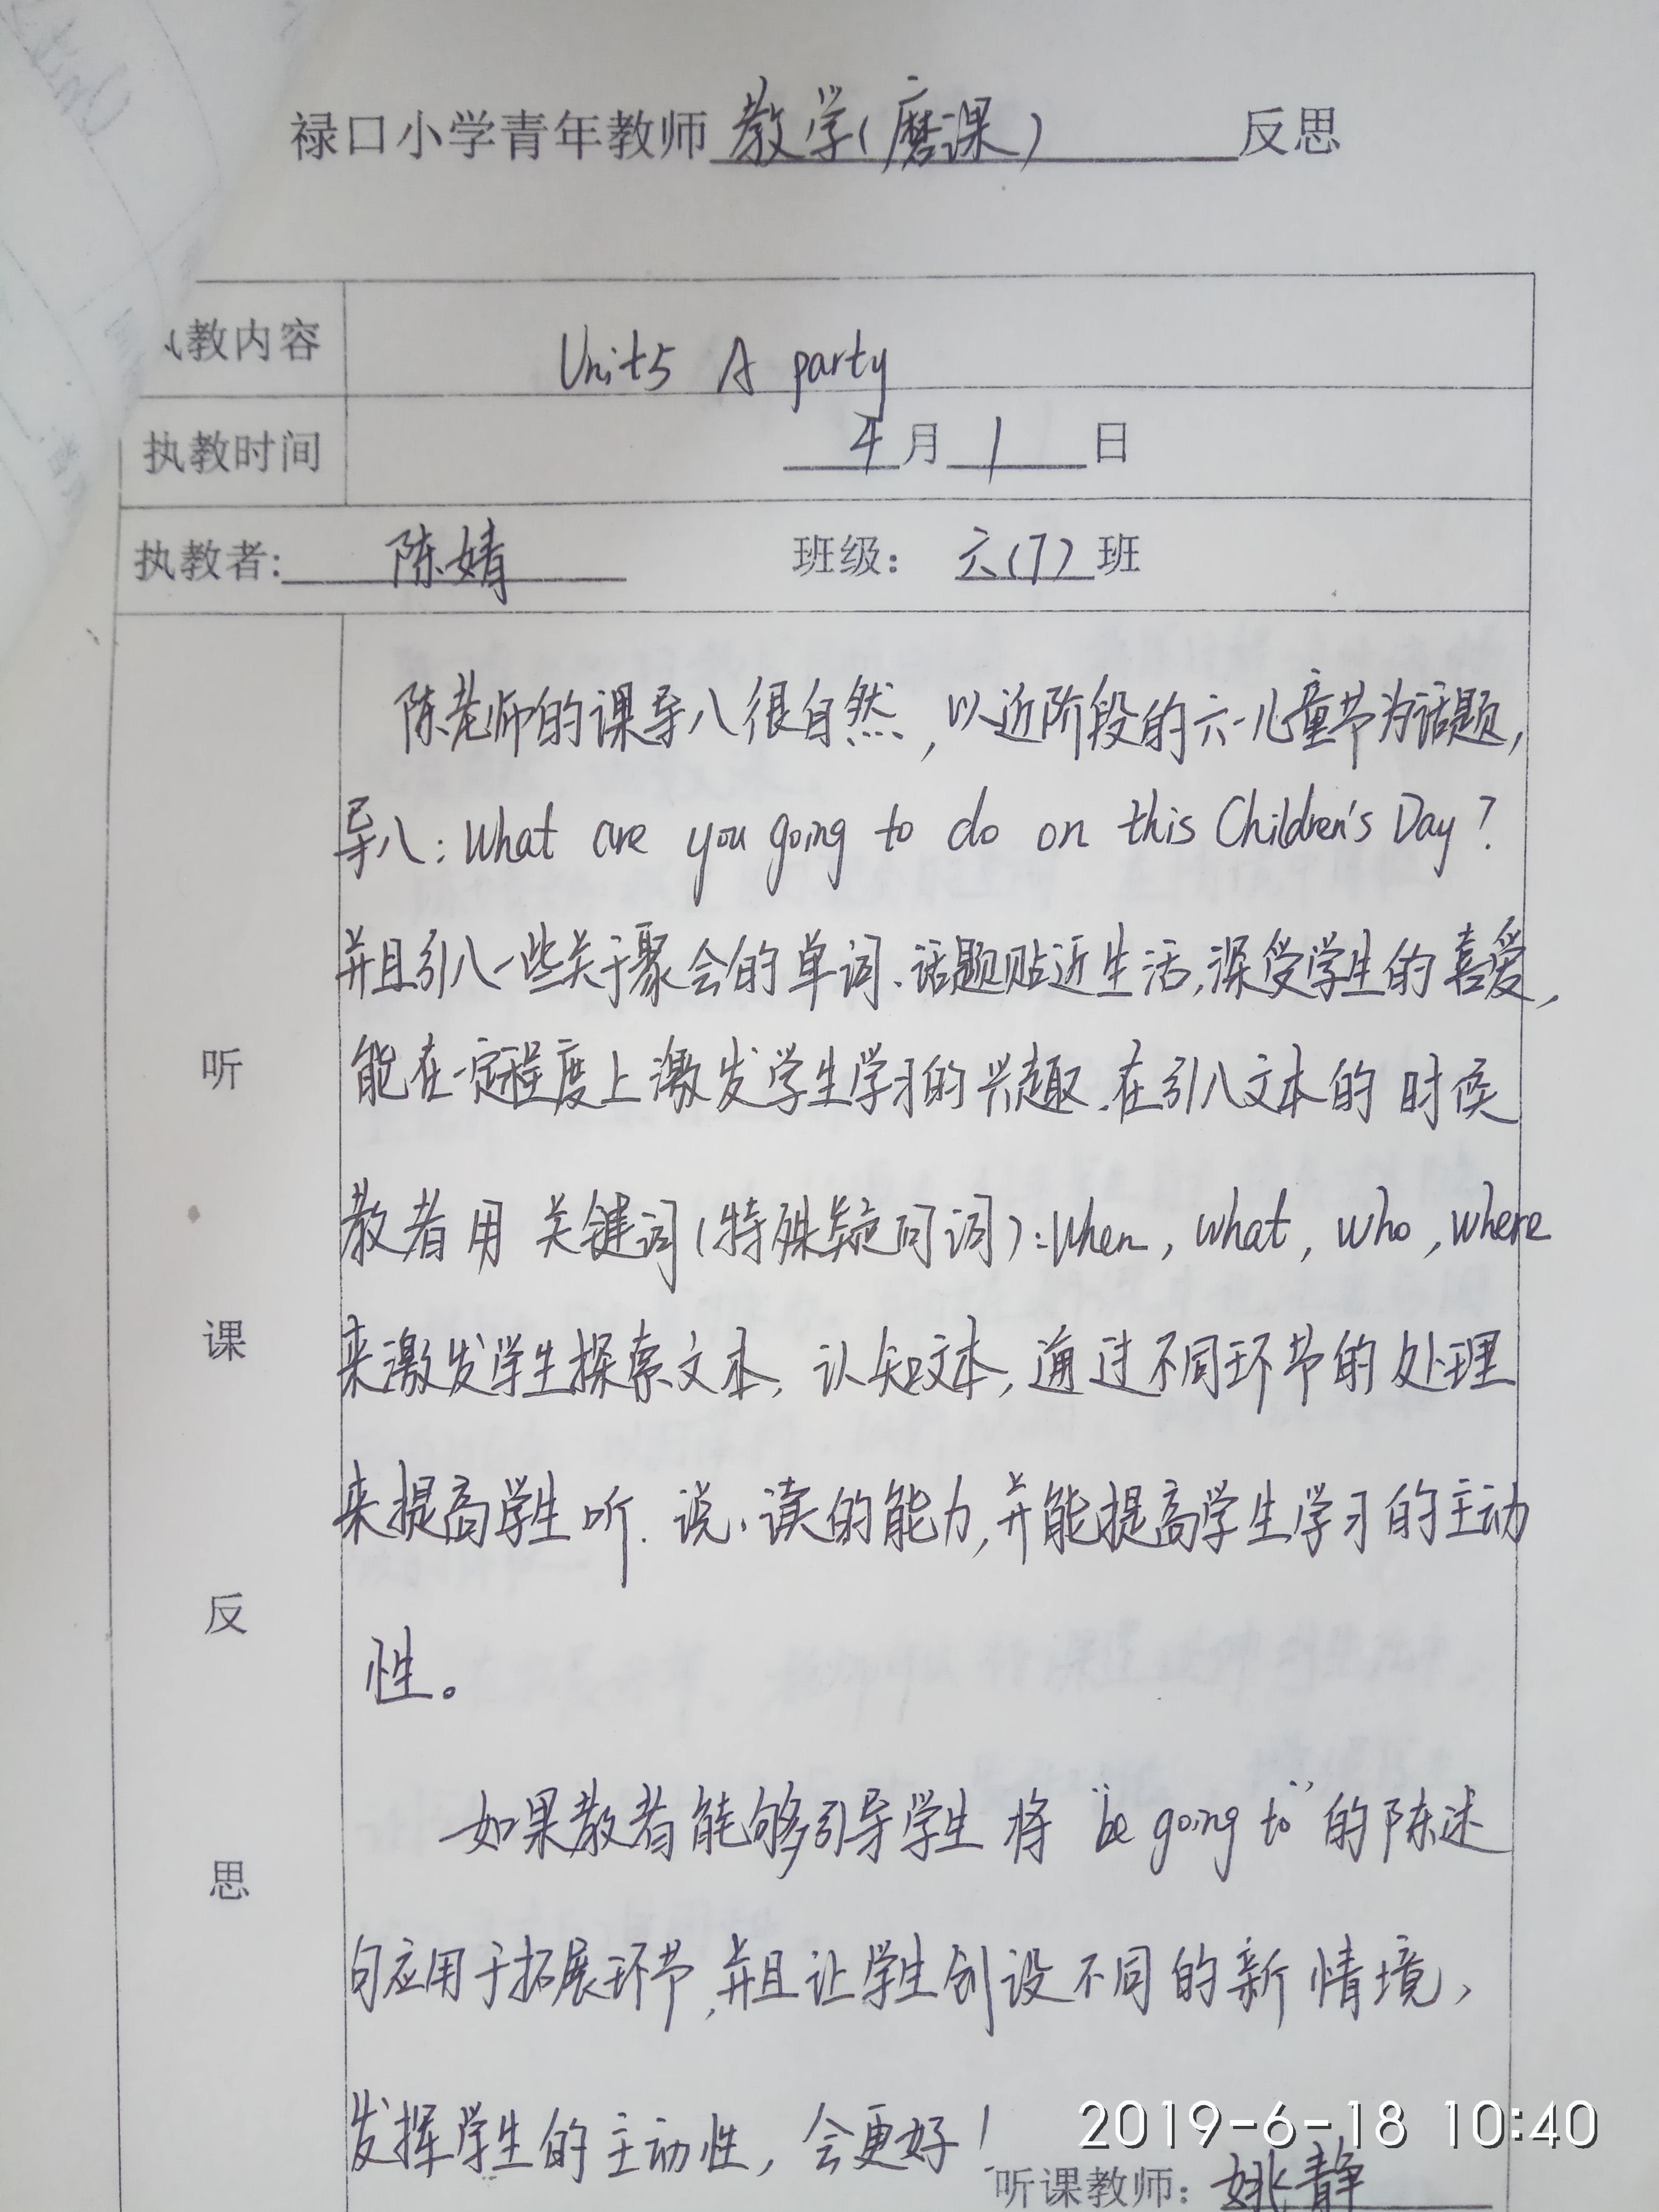 禄口小学青年教师教学(磨课)反思
执教内容 Unit5 A party
执教时间 4月1日
执教者: 陈婧 班级: 六(7)班
听课反思
陈老师的课导入很自然,以近阶段的六一儿童节为话题,
导入: What are you going to do on this Children's Day?
并且引入一些关于聚会的单词.话题贴近生活,深受学生的喜爱,
能在一定程度上激发学生学习的兴趣.在引入文本的时候
教者用关键词(特殊疑问词): When, what, who, where
来激发学生探索文本,认知文本,通过不同环节的处理
来提高学生听.说.读的能力,并能提高学生学习的主动
性。
如果教者能够引导学生将"be going to"的陈述
句应用于拓展环节,并且让学生创设不同的新情境,
发挥学生的主动性,会更好!
2019-6-18 10:40
听课教师: 姚静